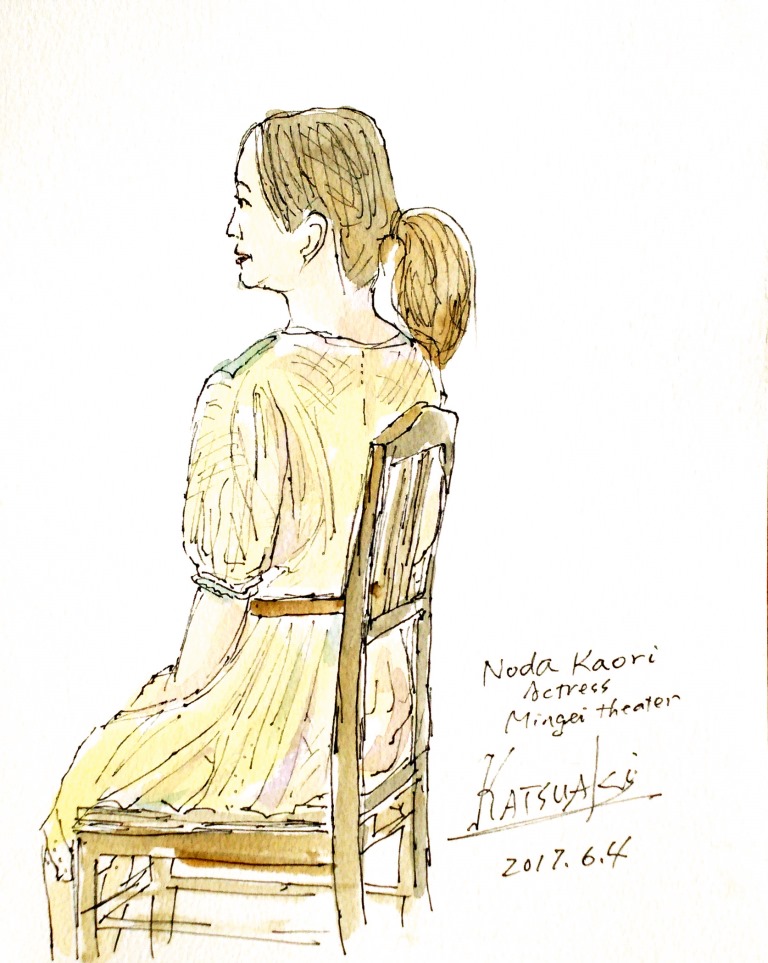 Noda Kaori
Actress
Mingei theater
KATSUAKi
2017.6.4